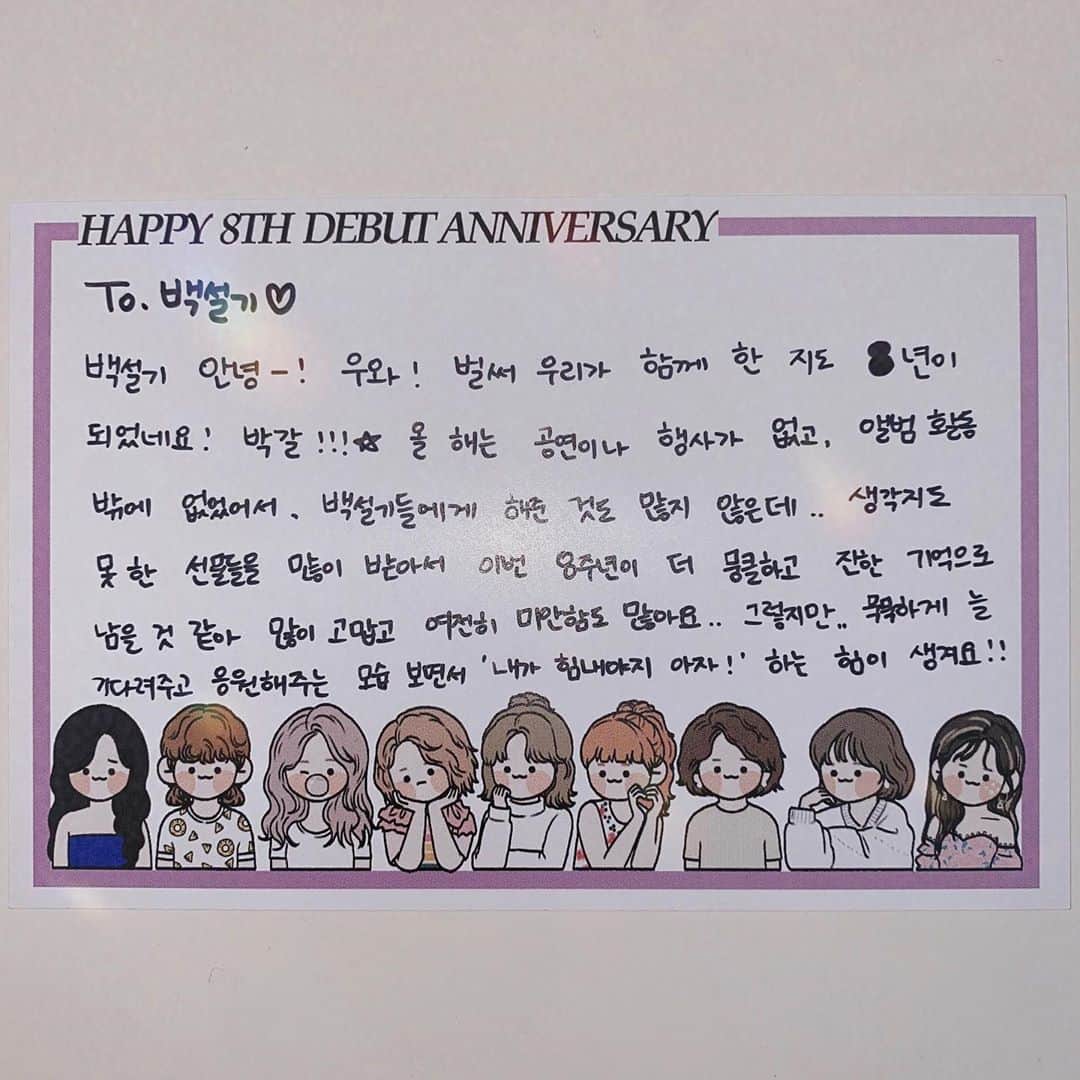 HAPPY 8TH DEBUT ANNIVERSARY
To. 백설기♡
백설기 안녕-! 우와! 벌써 우리가 함께 한 지도 8년이
되었네요! 박갈!!!☆ 올 해는 공연이나 행사가 없고, 앨범 활동
밖에 없었어서, 백설기들에게 해준 것도 많지 않은데.. 생각지도
못 한 선물들을 많이 받아서 이번 8주년이 더 뭉클하고 진한 기억으로
남을 것 같아 많이 고맙고 여전히 미안함도 많아요.. 그렇지만.. 묵묵하게 늘
기다려주고 응원해주는 모습 보면서 '내가 힘내야지 아자!' 하는 힘이 생겨요!!